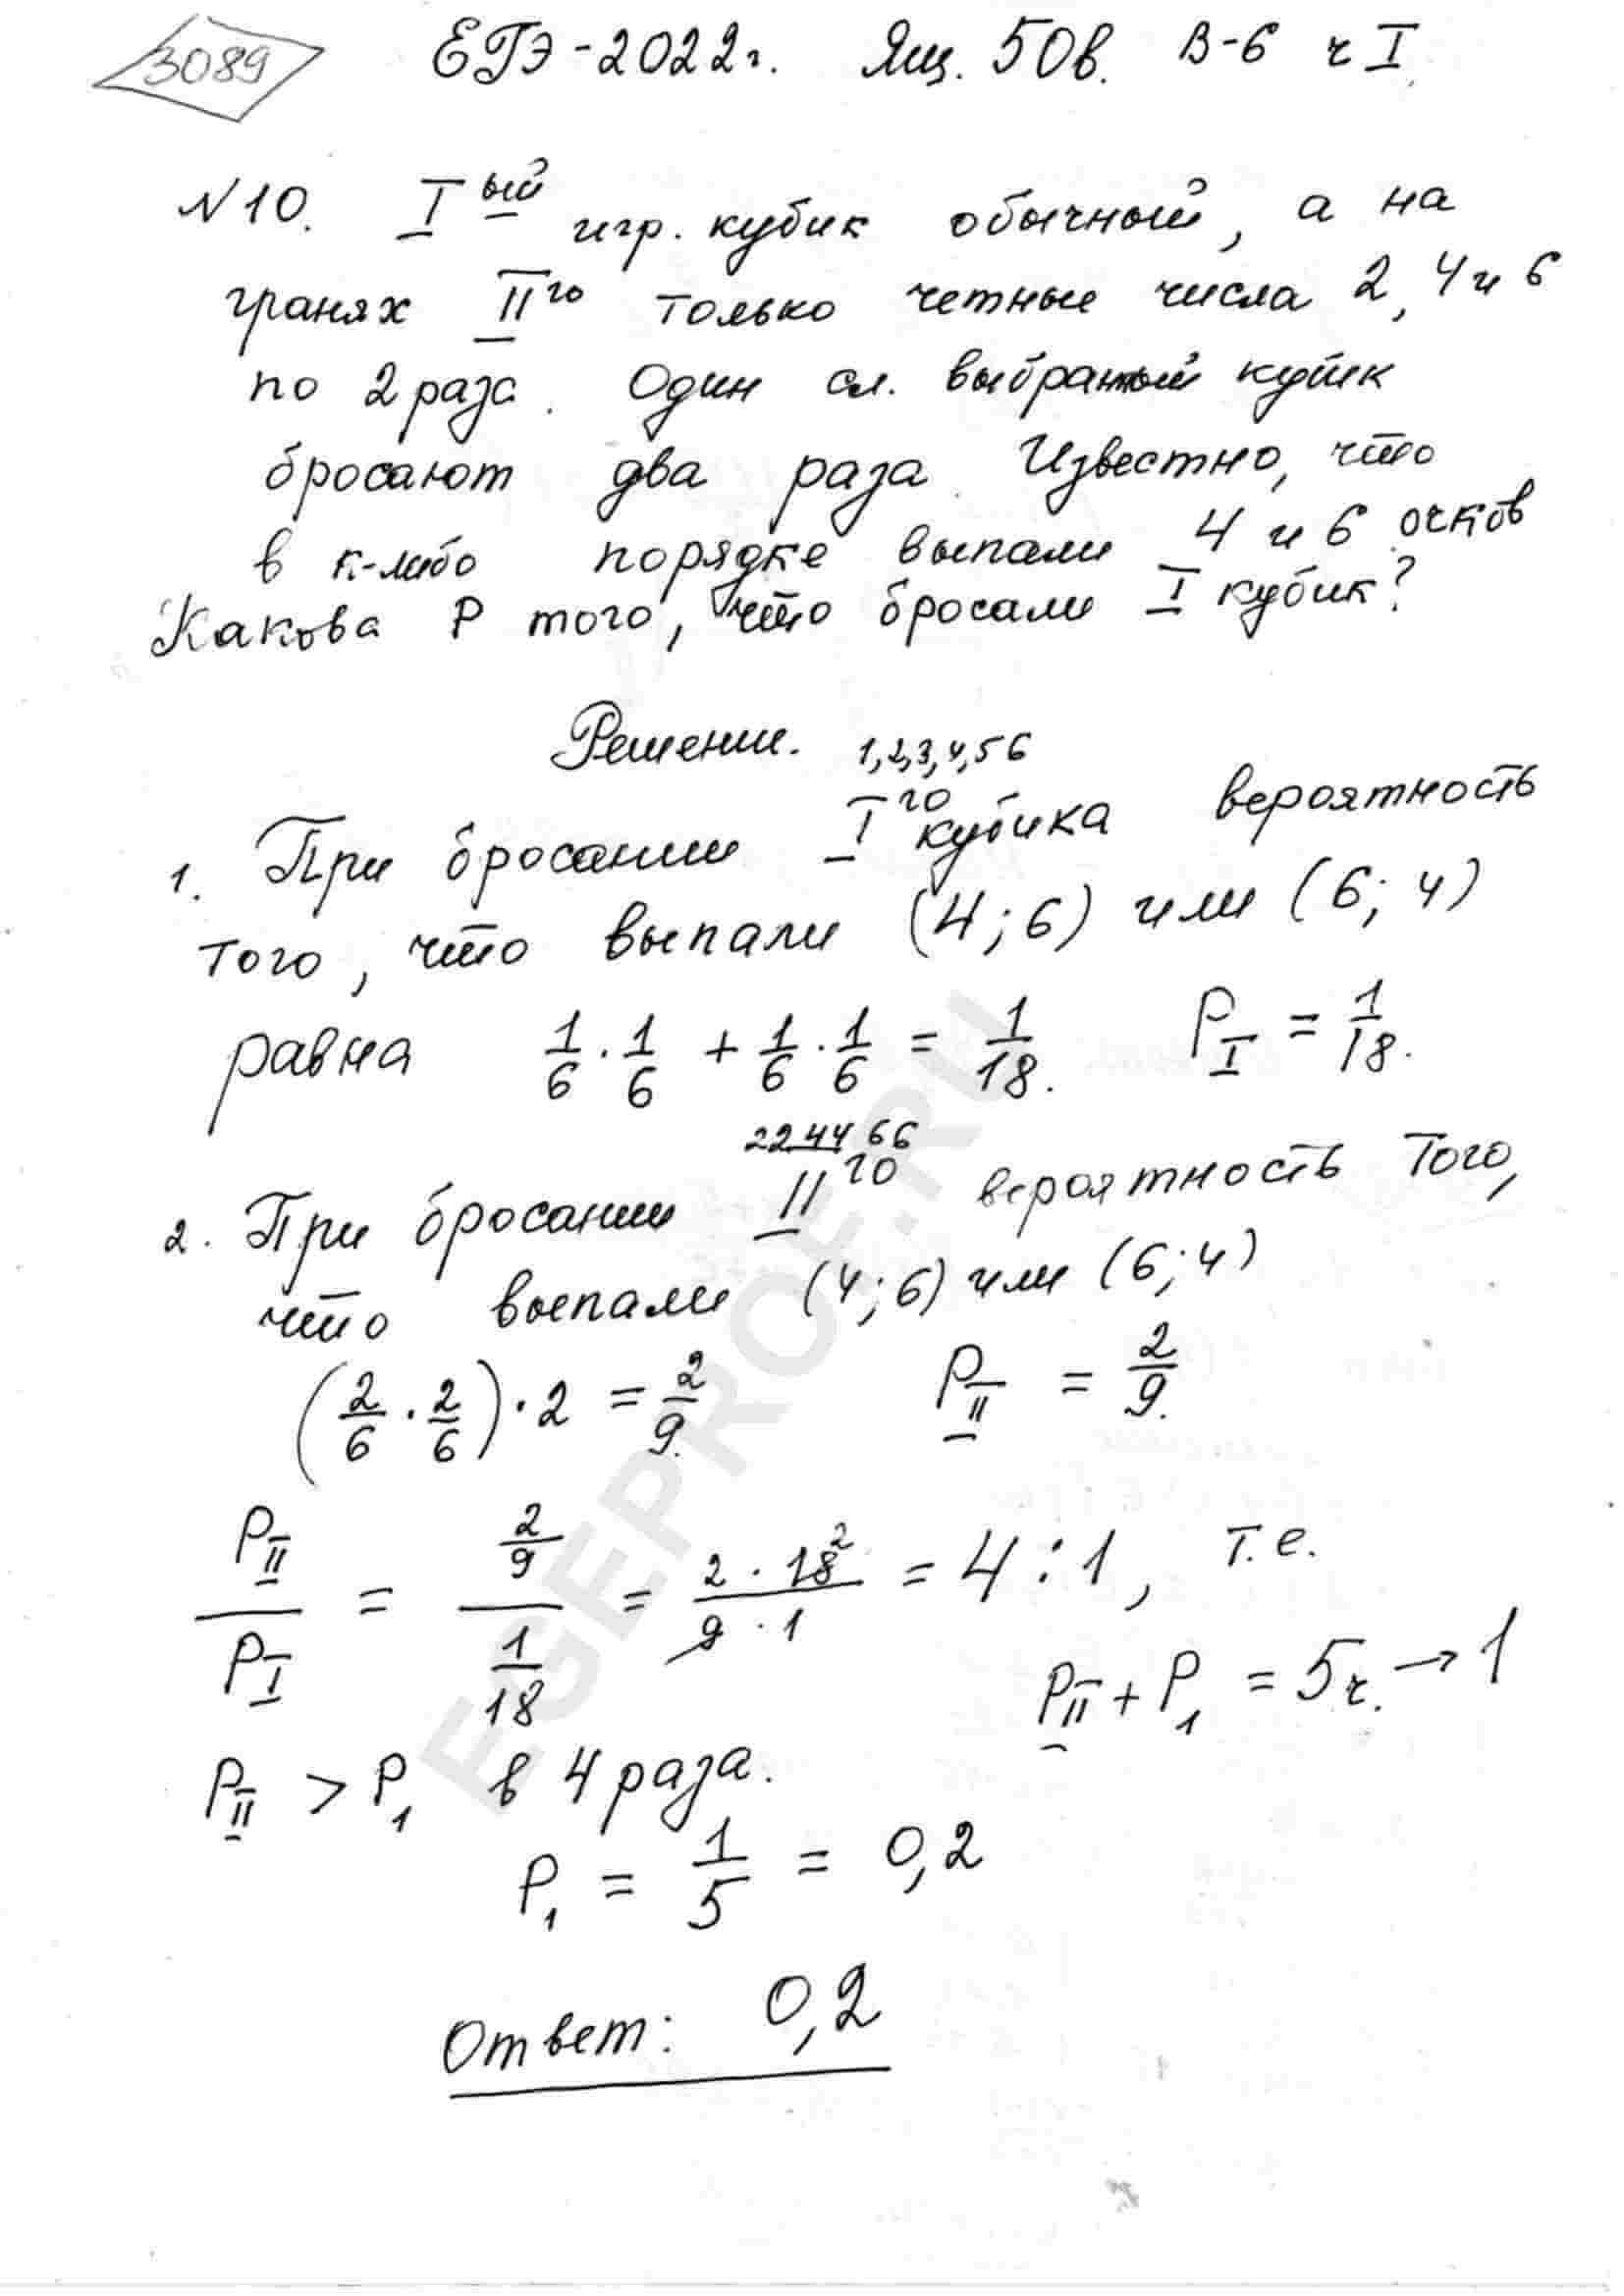 3089
ЕГЭ-2022г. Ящ. 50в. В-6 ч I
N10. I ый игр. кубик обычный, а на
гранях II го только четные числа 2, 4 и 6
по 2 раза. Один сл. выбранный кубик
бросают два раза. Известно, что
в к-либо порядке выпали 4 и 6 очков
Какова P того, что бросали I кубик?
Решение.
1,2,3,4,5 6
1. При бросании I го кубика вероятность
того, что выпали (4; 6) или (6; 4)
равна 1/6 · 1/6 + 1/6 · 1/6 = 1/18. P_I = 1/18.
22 44 66
2. При бросании II го вероятность того,
что выпали (4; 6) или (6; 4)
(2/6 · 2/6) · 2 = 2/9. P_II = 2/9.
P_II / P_I = (2/9) / (1/18) = (2 · 18 ²) / (9 · 1) = 4 : 1, т.е.
P_II + P_1 = 5ч. → 1
P_II > P_1 в 4 раза.
P_1 = 1/5 = 0,2
Ответ: 0,2
EGEPROF.RU